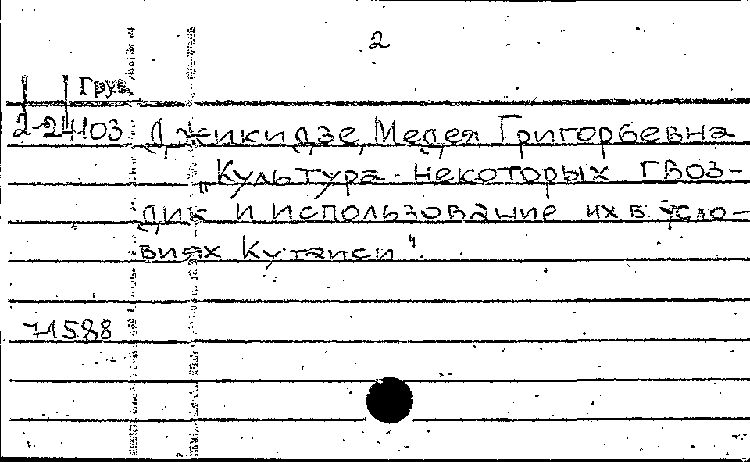 2
Груз
2-24103 Джикидзе, Медея Григорьевна
„Культура некоторых гвоз-
дик и использование их в усло-
виях Кутаиси".
71588